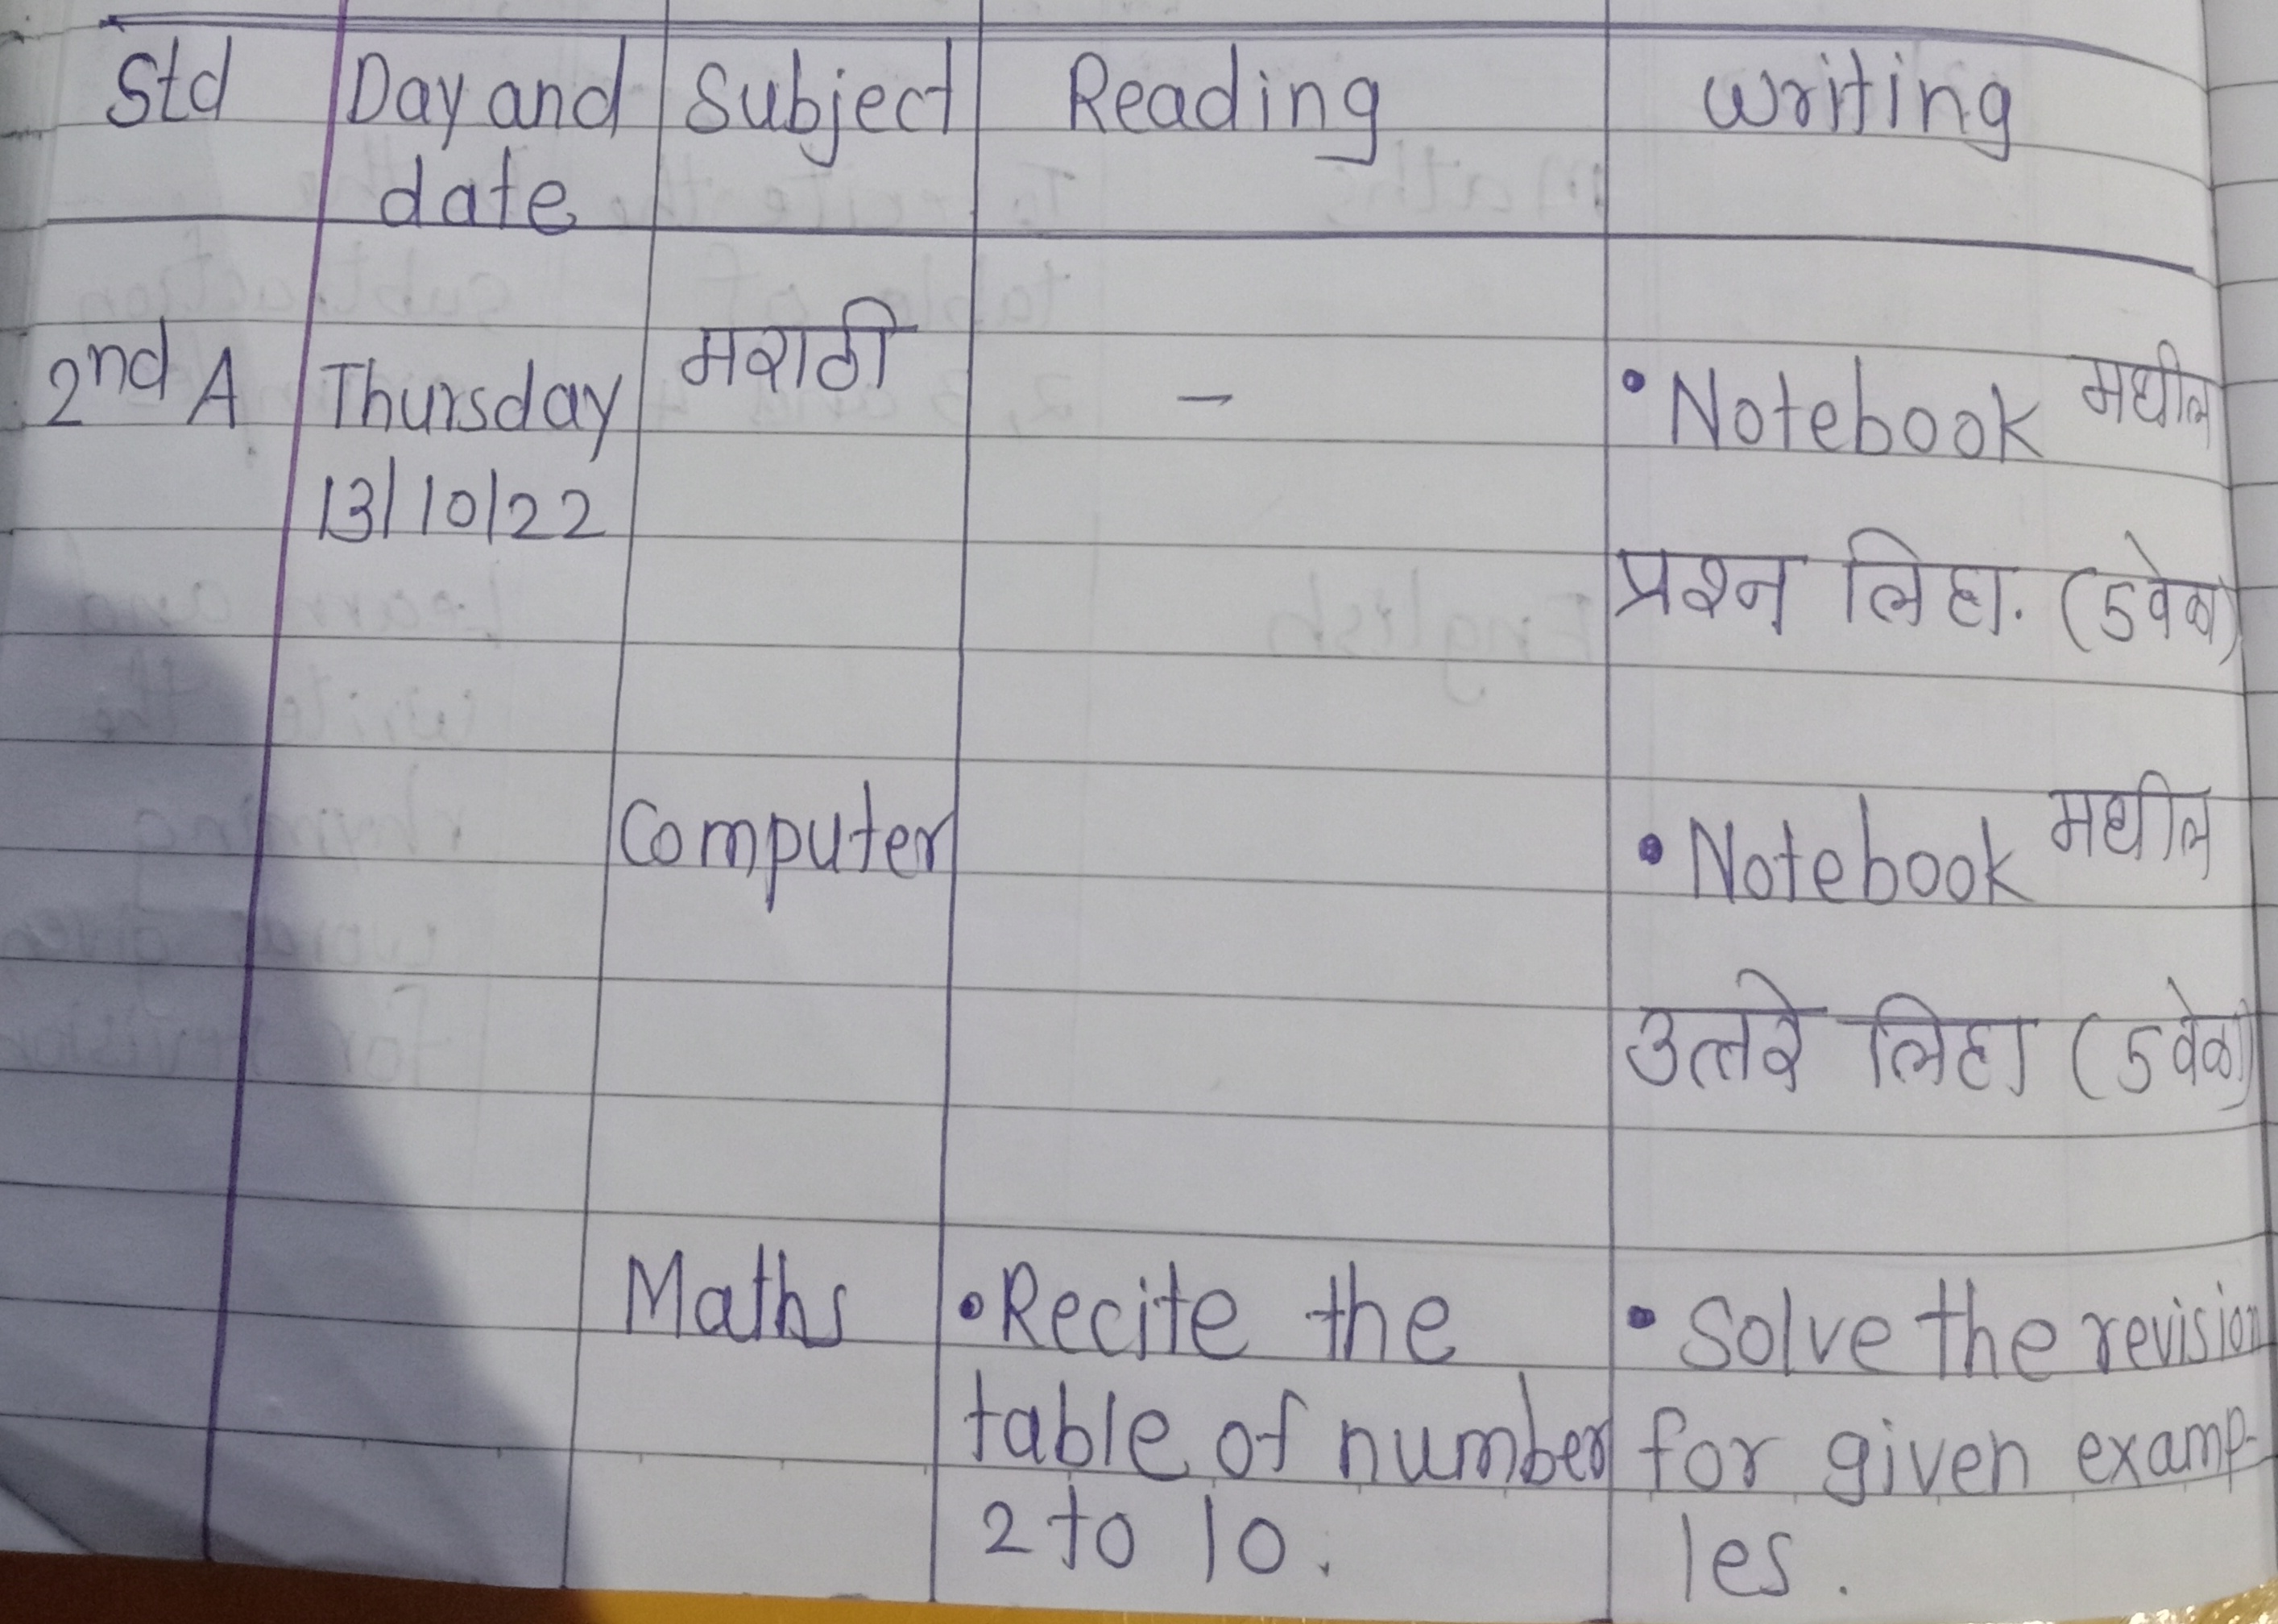 Std Day and Subject Reading Writing
date
2nd A Thursday मराठी - • Notebook मधील
13/10/22
प्रश्न लिहा. (5वेळा)
Computer • Notebook मधील
उत्तरे लिहा (5वेळा)
Maths • Recite the • Solve the revision
table of number for given examp-
2 to 10. les.